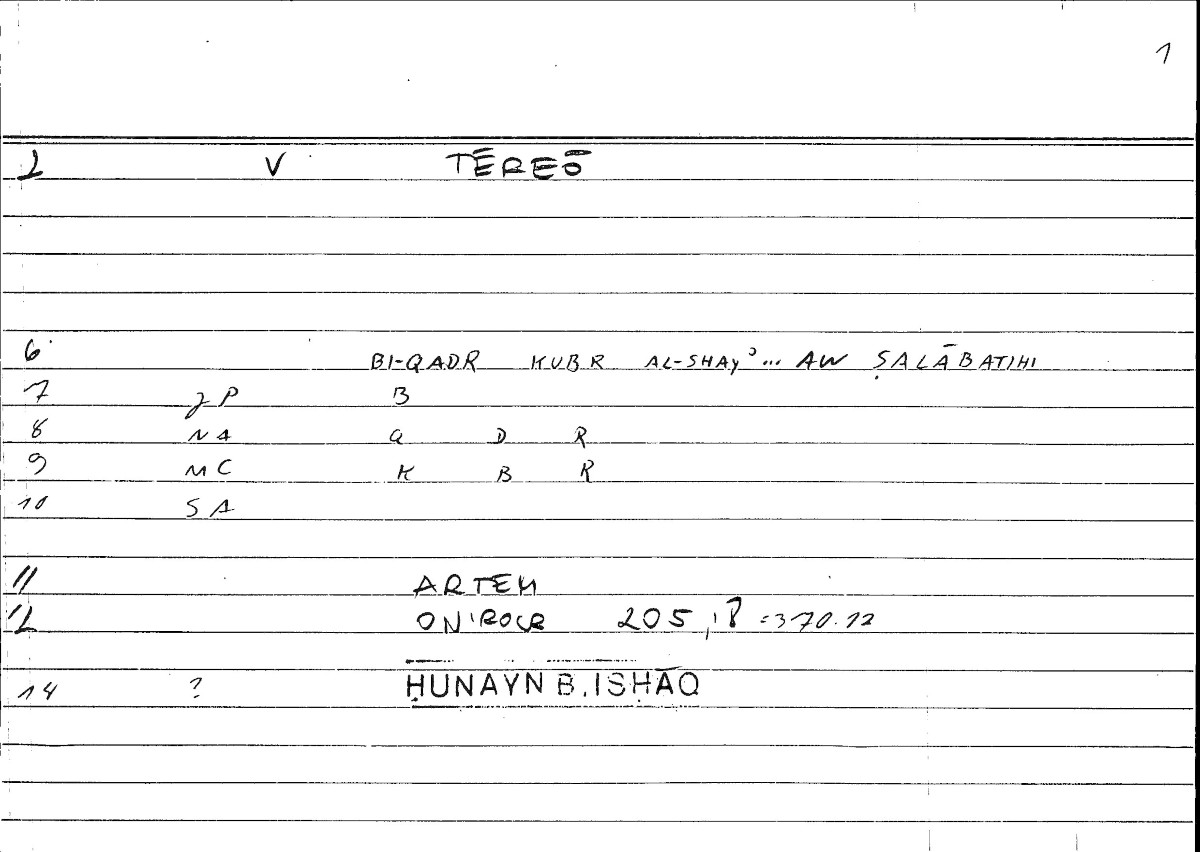 1
2 V TĒREŌ
6 BI-QADR KUBR AL-SHAYʾ... AW ṢALĀBATIHI
7 JP B
8 NA Q D R
9 MC K B R
10 SA
11 ARTEM
12 ONIROCR 205,18 =370.12
14 ? ḤUNAYN B. ISḤĀQ